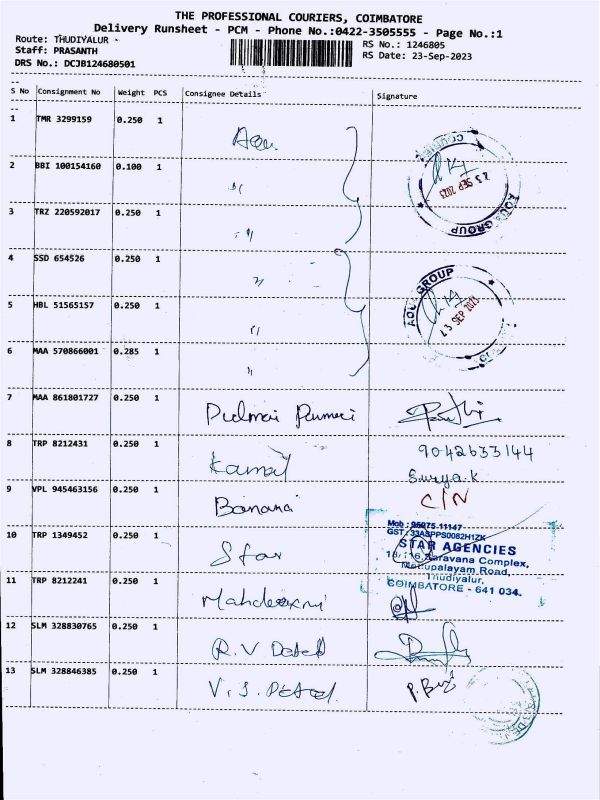 THE PROFESSIONAL COURIERS, COIMBATORE
Delivery Runsheet - PCM - Phone No.:0422-3505555 - Page No.:1
Route: THUDIYALUR
Staff: PRASANTH
DRS No.: DCJB124680501
RS No.: 1246805
RS Date: 23-Sep-2023
S No Consignment No Weight PCS Consignee Details Signature
1 TMR 3299159 0.250 1
2 BBI 100154160 0.100 1 "
3 TRZ 220592017 0.250 1 "
23 SEP 2023
AQUA GROUP
4 SSD 654526 0.250 1 "
5 HBL 51565157 0.250 1 "
6 MAA 570866001 0.285 1 "
AQUA GROUP
23 SEP 2023
7 MAA 861801727 0.250 1
8 TRP 8212431 0.250 1 Kamal 9042633144
Surya.k
9 VPL 945463156 0.250 1 Banana C/N
10 TRP 1349452 0.250 1 Star
Mob : 95975 11147
STAR AGENCIES
Saravana Complex,
Mettupalayam Road,
Thudiyalur,
COIMBATORE - 641 034.
11 TRP 8212241 0.250 1
12 SLM 328830765 0.250 1 R.V
13 SLM 328846385 0.250 1 V.S.